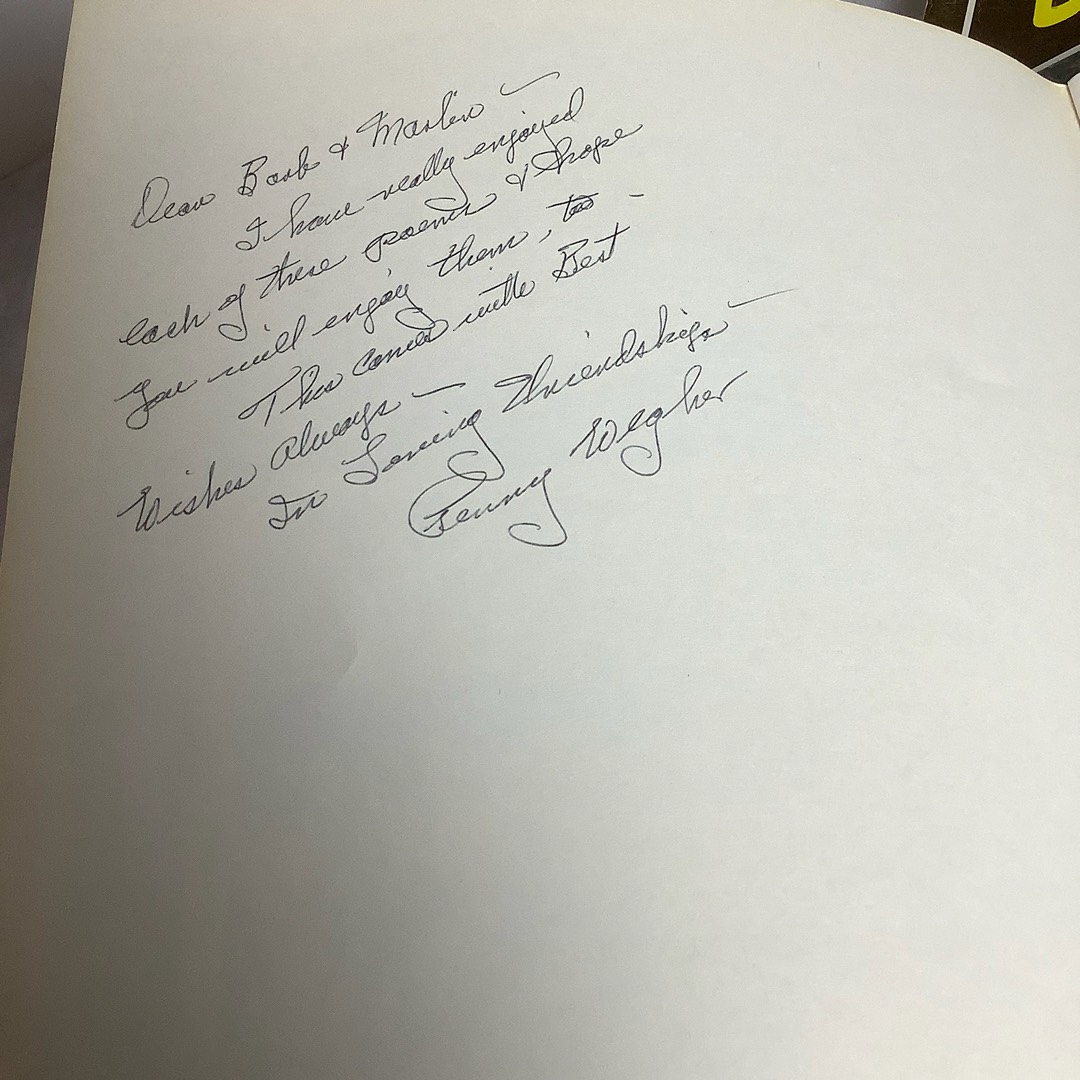 Dear Barb & Marlin —
I have really enjoyed
each of these poems & hope
you will enjoy them, too -
This comes with Best
Wishes always —
In Loving Friendship —
Penny Wegher